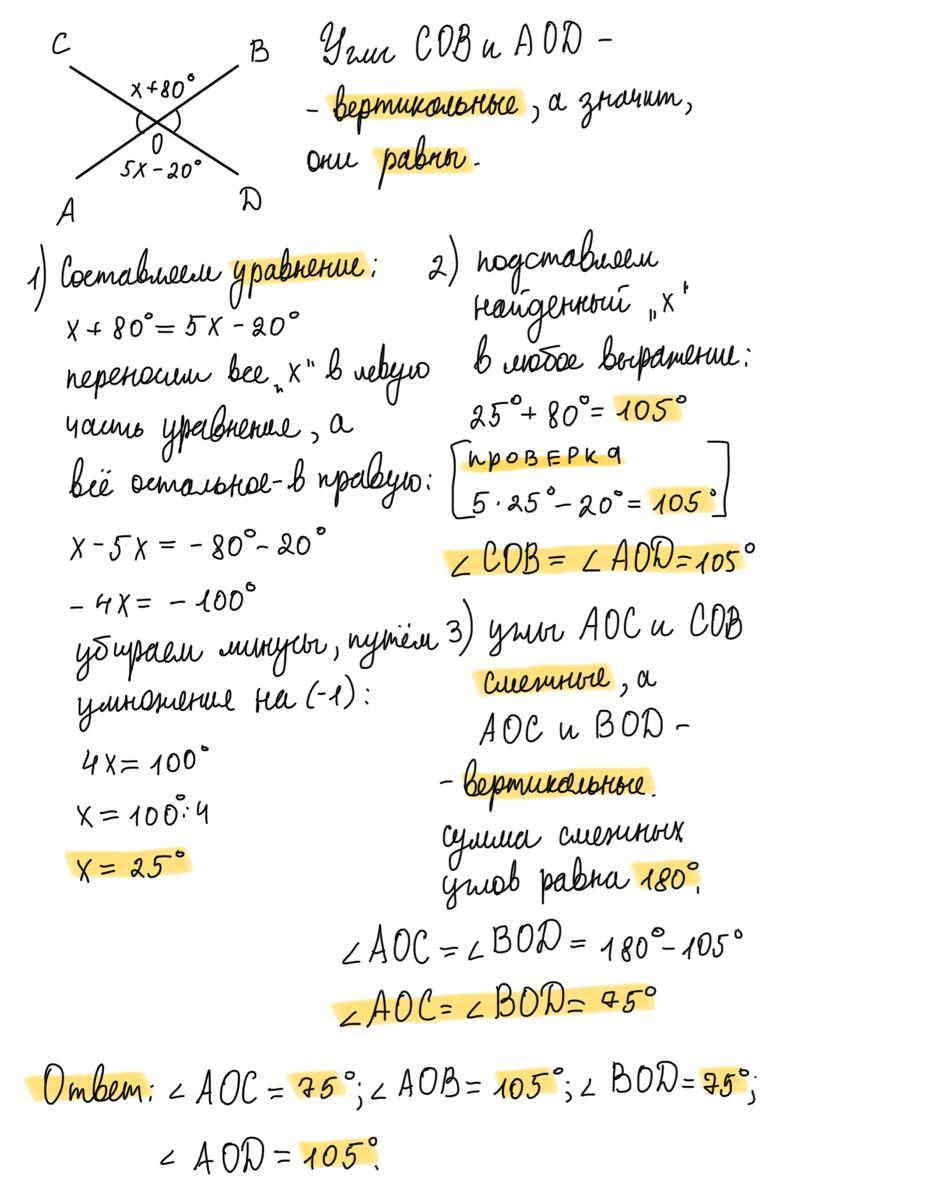 C
B
x+80°
O
5x-20°
A
D
Углы COB и AOD -
- вертикальные, а значит,
они равны.
1) Составляем уравнение:
x + 80° = 5x - 20°
переносим все „x" в левую
часть уравнения, а
всё остальное - в правую:
x - 5x = - 80° - 20°
- 4x = - 100°
убираем минусы, путём
умножения на (-1):
4x = 100°
x = 100° : 4
x = 25°
2) подставляем
найденный „x"
в любое выражение:
25° + 80° = 105°
ПРОВЕРКА
5 · 25° - 20° = 105°
∠ COB = ∠ AOD = 105°
3) углы AOC и COB
смежные, а
AOC и BOD -
- вертикальные.
сумма смежных
углов равна 180°.
∠ AOC = ∠ BOD = 180° - 105°
∠ AOC = ∠ BOD = 75°
Ответ: ∠ AOC = 75°; ∠ AOB = 105°; ∠ BOD = 75°;
∠ AOD = 105°.